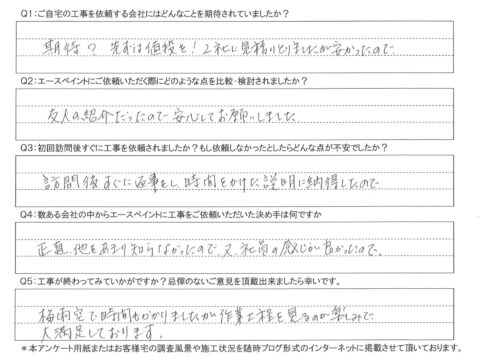 Q1：ご自宅の工事を依頼する会社にはどんなことを期待されていましたか？
期待？ 先ずは値段を！2社に見積りとりましたが安かったので
Q2：エースペイントにご依頼いただく際にどのような点を比較・検討されましたか？
友人の紹介だったので安心してお願いしました
Q3：初回訪問後すぐに工事を依頼されましたか？もし依頼しなかったとしたらどんな点が不安でしたか？
訪問後すぐに返事をし、時間をかけた説明に納得したので
Q4：数ある会社の中からエースペイントに工事をご依頼いただいた決め手は何ですか
正直、他をあまり知らなかったので、又、社員の感じが良かったので。
Q5：工事が終わってみていかがですか？忌憚のないご意見を頂戴出来ましたら幸いです。
梅雨空で時間もかかりましたが作業工程を見るのが楽しみで
大満足しております。
＊本アンケート用紙またはお客様宅の調査風景や施工状況を随時ブログ形式のインターネットに掲載させて頂いております。